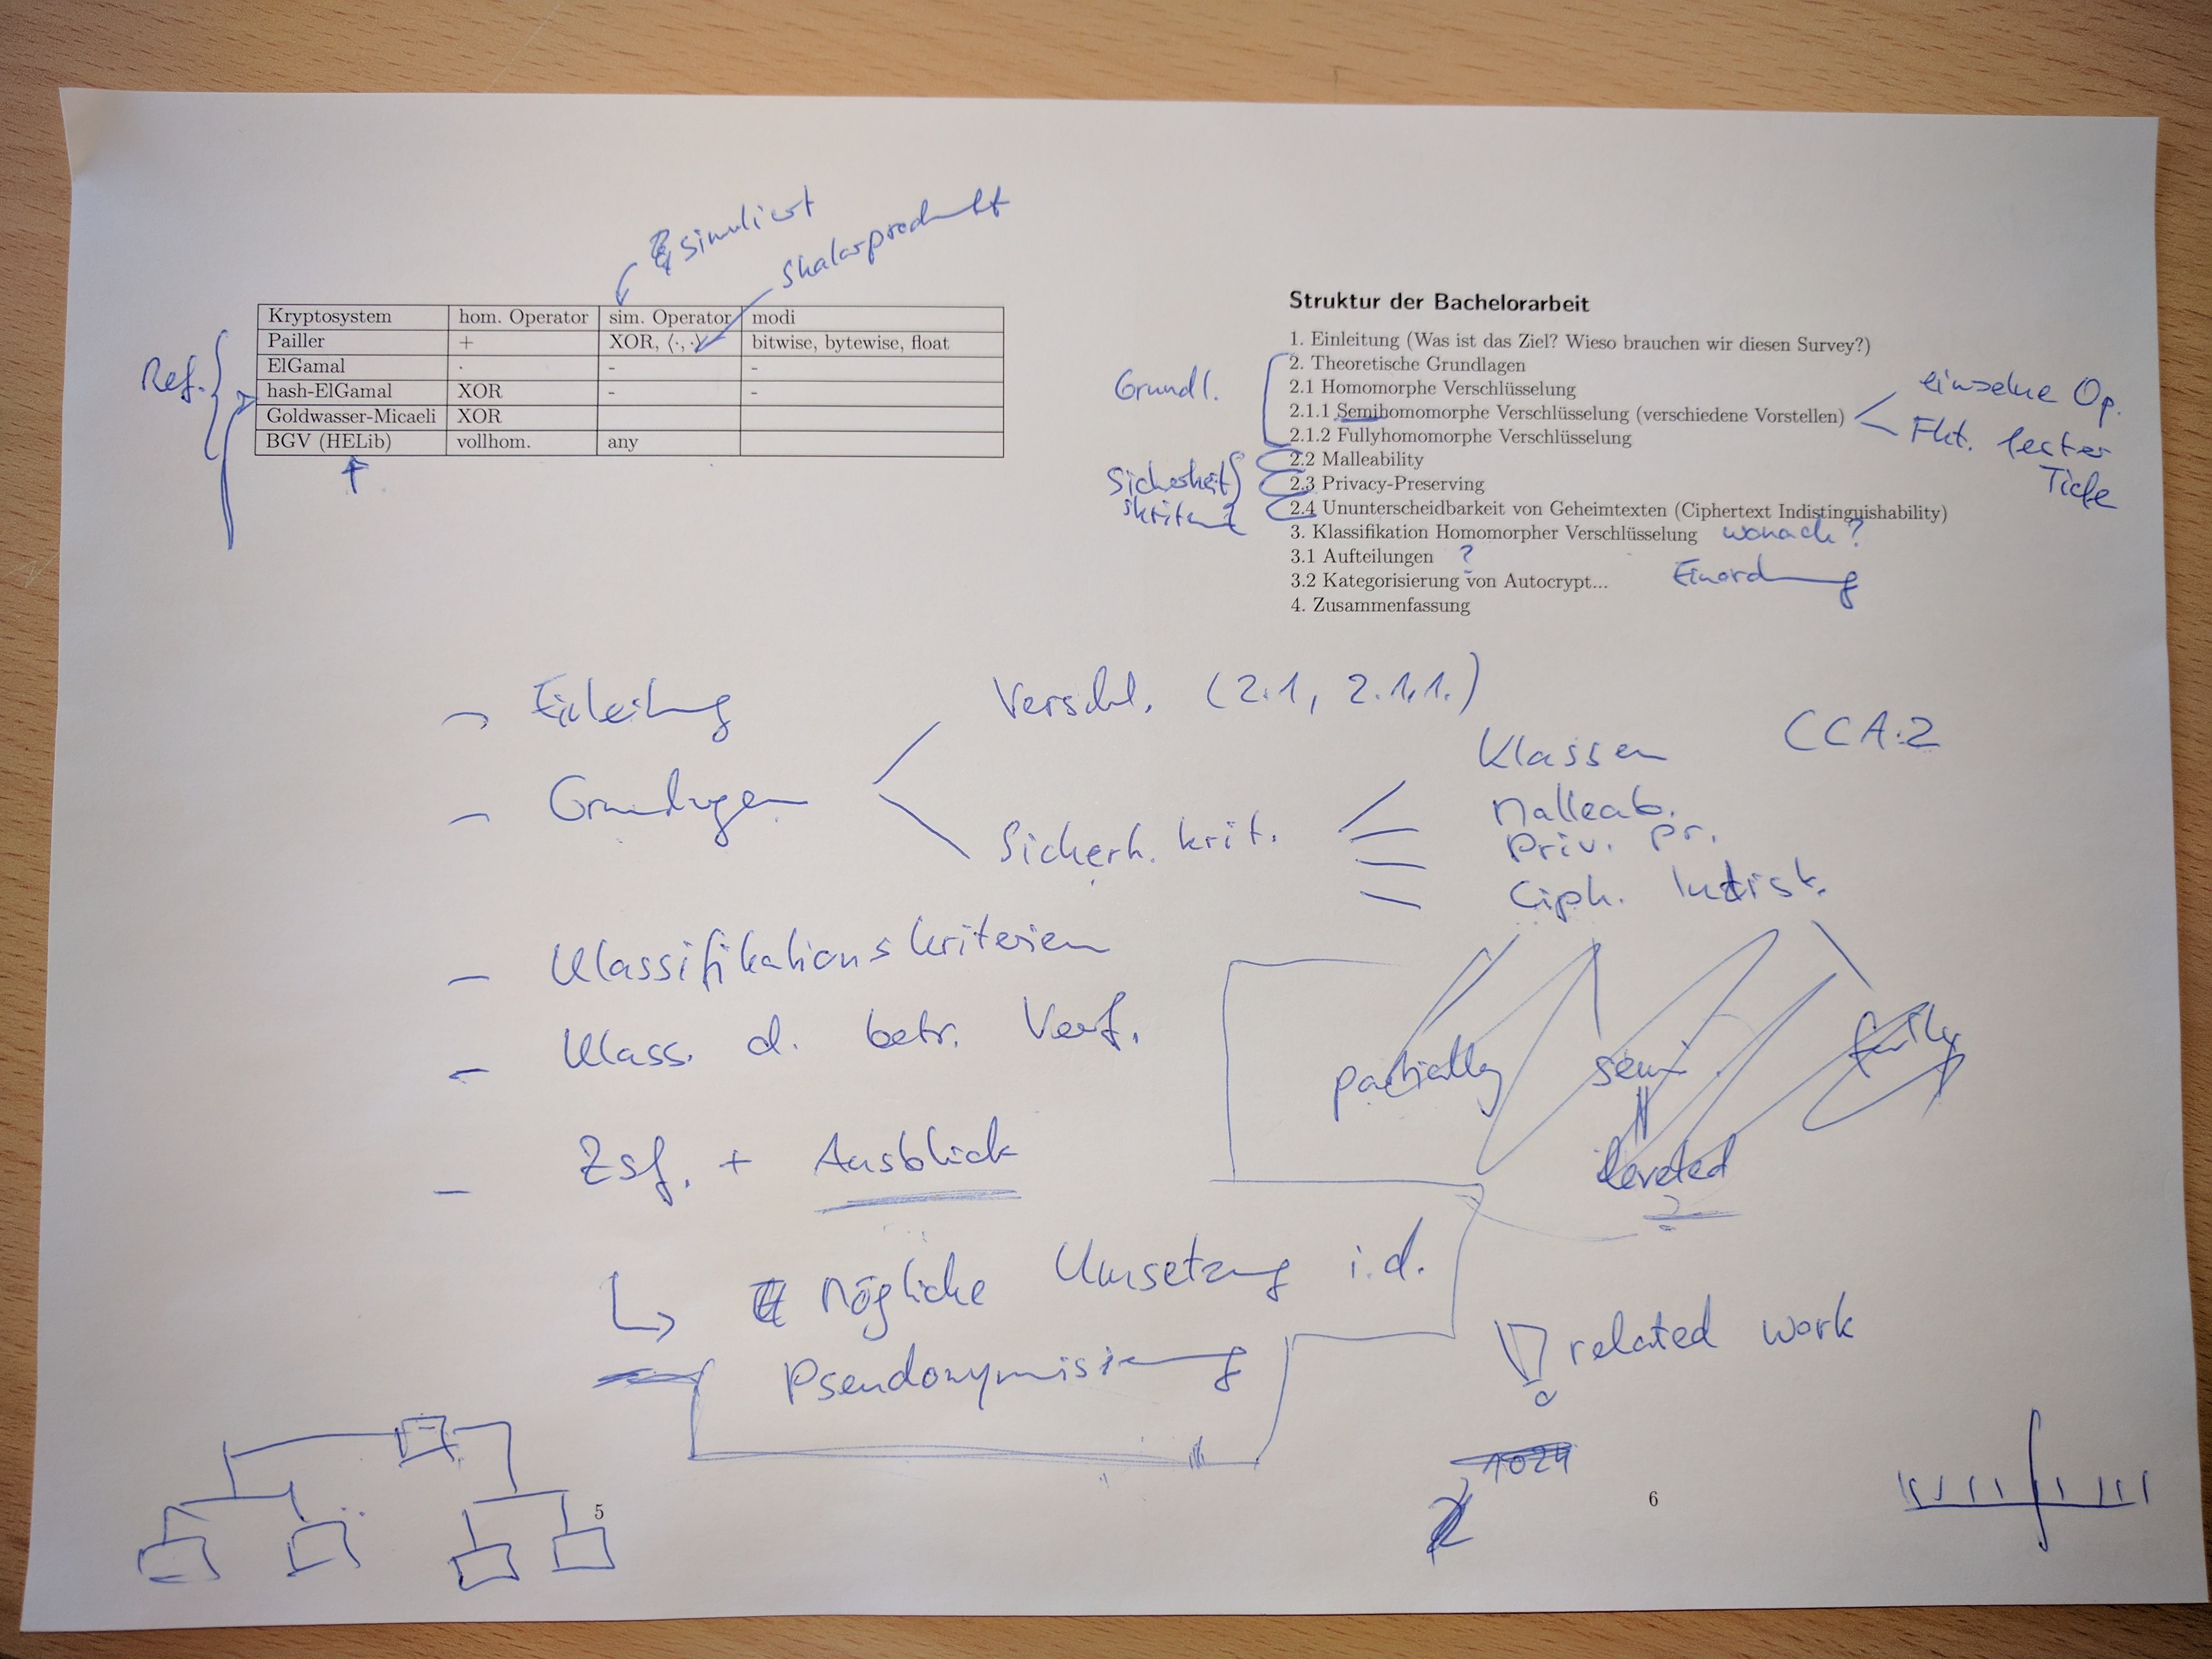 simuliert
Skalarprodukt
Kryptosystem hom. Operator sim. Operator modi
Pailler + XOR, ⟨·, ·⟩ bitwise, bytewise, float
ElGamal · - -
hash-ElGamal XOR - -
Goldwasser-Micaeli XOR
BGV (HELib) vollhom. any
Ref.
Struktur der Bachelorarbeit
1. Einleitung (Was ist das Ziel? Wieso brauchen wir diesen Survey?)
2. Theoretische Grundlagen
2.1 Homomorphe Verschlüsselung
2.1.1 Semihomomorphe Verschlüsselung (verschiedene Vorstellen)
2.1.2 Fullyhomomorphe Verschlüsselung
2.2 Malleability
2.3 Privacy-Preserving
2.4 Ununterscheidbarkeit von Geheimtexten (Ciphertext Indistinguishability)
3. Klassifikation Homomorpher Verschlüsselung wonach?
3.1 Aufteilungen ?
3.2 Kategorisierung von Autocrypt... Einordnung
4. Zusammenfassung
Grundl.
Sicherheit
skrit
einzelne Op.
Fkt. fester
Tiefe
- Einleitung
- Grundlagen
Verschl. (2.1, 2.1.1.)
Sicherh. krit.
Klassen CCA.2
Malleab.
Priv. pr.
Ciph. Indist.
- Klassifikationskriterien
- Klass. d. betr. Verf.
- Zsf. + Ausblick
partially semi fully
leveled
?
Mögliche Umsetzung i.d.
Pseudonymisierung
related work
1024
5
6